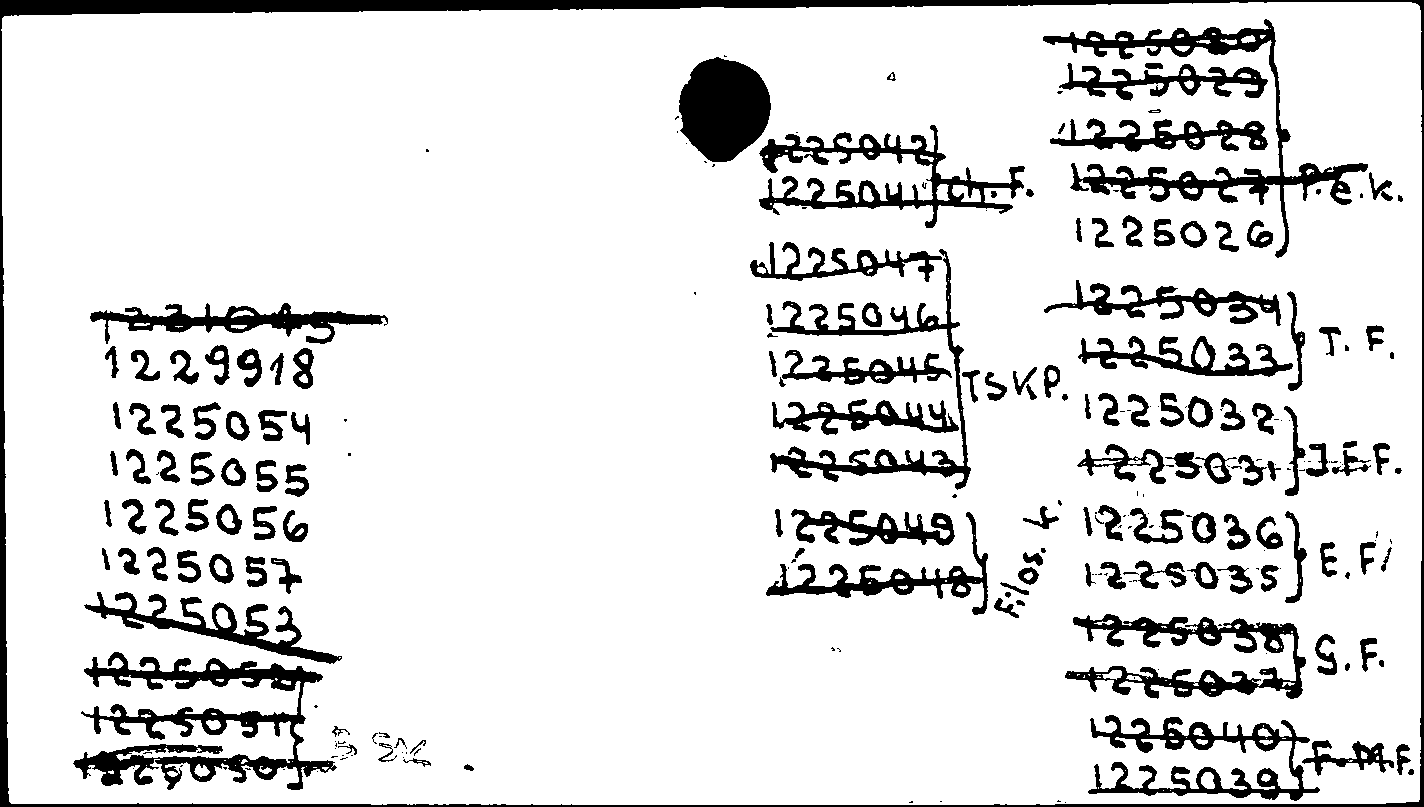 1231045
1229918
1225054
1225055
1225056
1225057
1225053
1225052
1225051
1225050
B SK
1225042
1225041
Ch. F.
1225047
1225046
1225045
1225044
1225043
TSKP.
1225049
1225048
Filos. F.
1225030
1225029
1225028
1225027
1225026
P.e.k.
1225034
1225033
T. F.
1225032
1225031
J.F.F.
1225036
1225035
E.F/
1225038
1225037
G.F.
1225040
1225039
F.M.F.